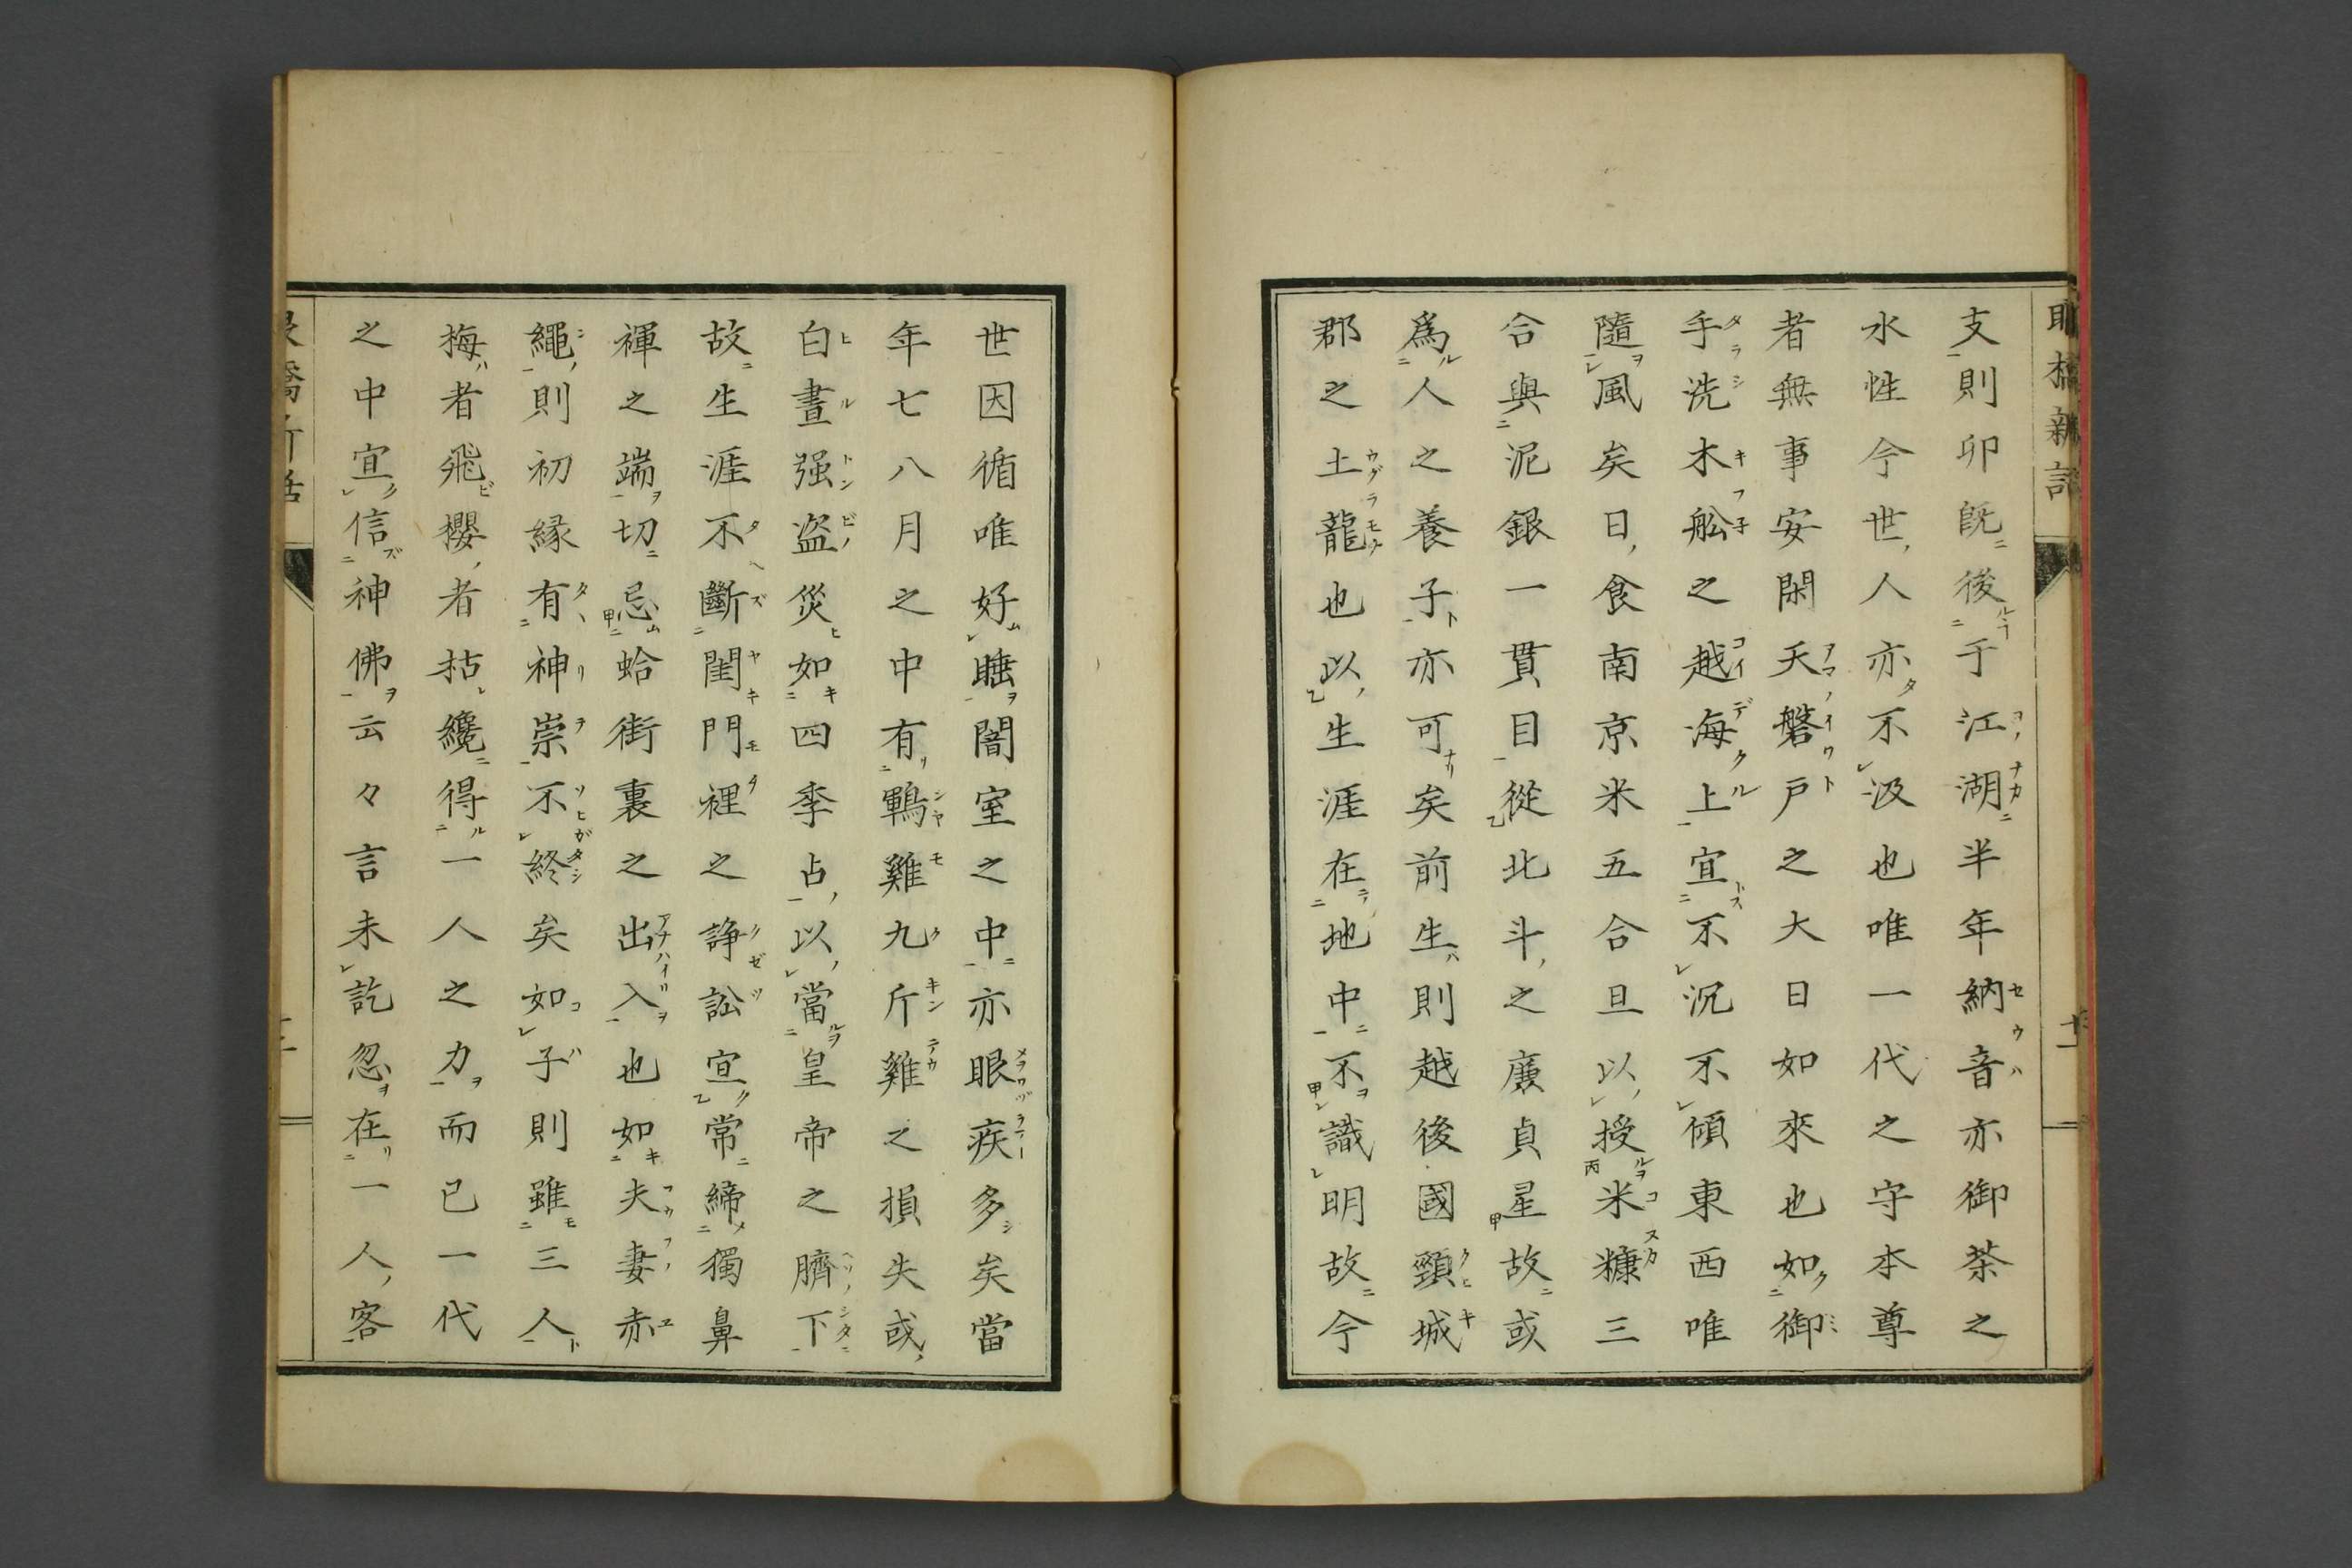 支則卯既後于江湖半年納音亦御茶之
水性今世人亦不汲也唯一代之守本尊
者無事安閑天磐戸之大日如來也如御
手洗木舩之越海上宜不沉不傾東西唯
隨風矣日食南京米五合旦以授米糠三
合與泥銀一貫目從北斗之廉貞星故或
爲人之養子亦可矣前生則越後國頸城
郡之土龍也以生涯在地中不識明故今
世因循唯好睡闇室之中亦眼疾多矣當
年七八月之中有鴨雞九斤雞之損失或
白晝强盜災如四季占以當皇帝之臍下
故生涯不斷閨門裡之諍訟宜常締獨鼻
褌之端切忌蛤街裏之出入也如夫妻赤
繩則初縁有神祟不終矣如子則雖三人
梅者飛櫻者枯纔得一人之力而已一代
之中宜信神佛云々言未訖忽在一人客